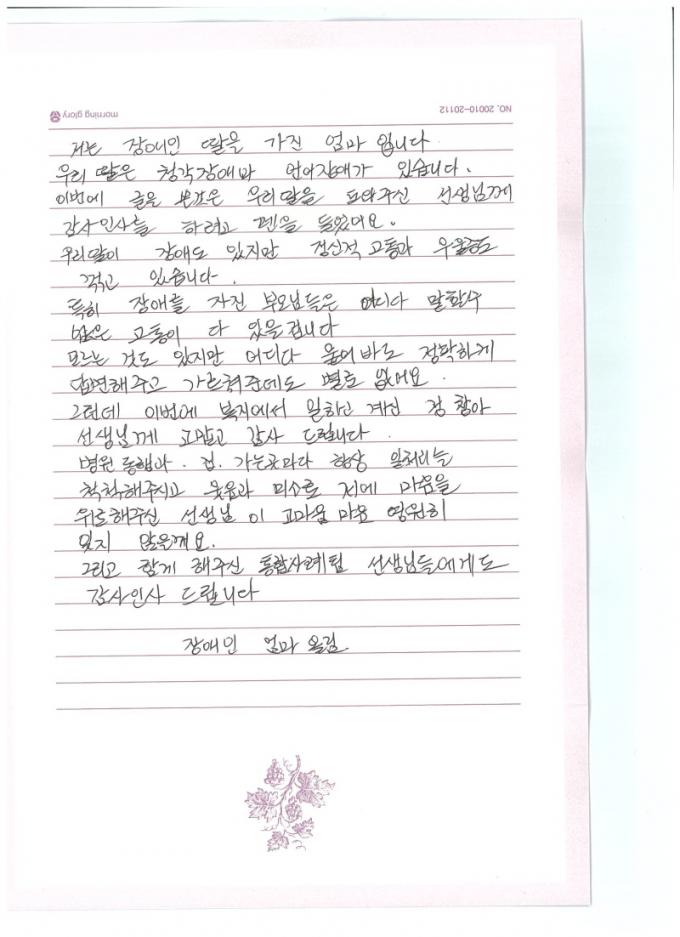 NO. 20010-20112
morning glory
저는 장애인 딸을 가진 엄마 입니다
우리 딸은 청각장애과 언어장애가 있습니다.
이번에 글을 쓴것은 우리딸을 도와주신 선생님께
감사인사를 하려고 펜을 들었어요.
우리딸이 장애도 있지만 정신적 고통과 우울증도
겪고 있습니다.
특히 장애를 가진 부모님들은 어디다 말할수
없은 고통이 다 있을겁니다
모르는 것도 있지만 어디다 물어바도 정확하게
답변해주고 가르켜주는데도 별로 없어요.
그런데 이번에 복지에서 일하고 계신 정 창아
선생님께 고맙고 감사 드립니다.
병원동행과. 집. 가는곳마다 항상 일처리를
척척해주시고 웃음과 미소로 저에 마음을
위로해주신 선생님 이 고마움 마음 영원히
잊지 않을께요.
그리고 함께 해주신 통합사례팀 선생님들에게도
감사인사 드립니다
장애인 엄마 올림.